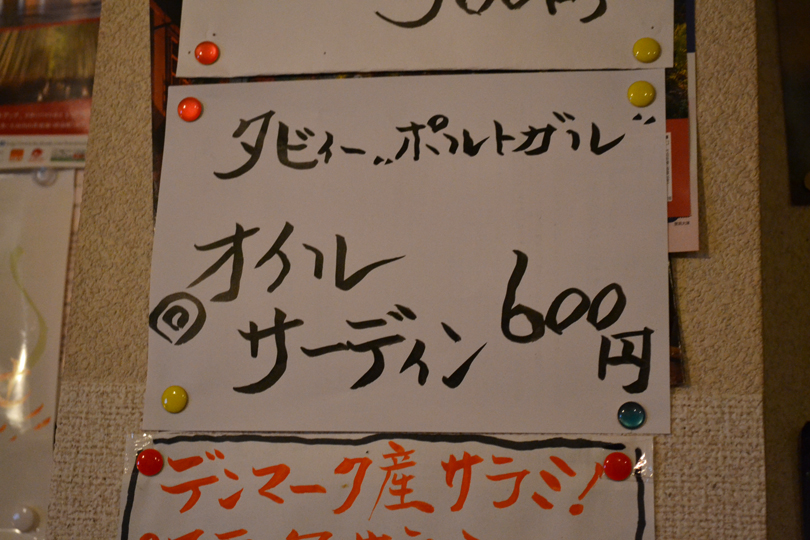 500円
タビィー〝ポルトガル〞
◎ オイル
サーディン 600円
デンマーク産サラミ!